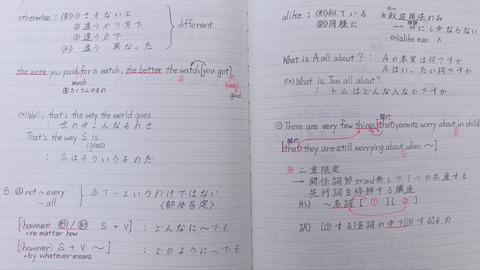 otherwise : (副) ① さもないと
② 違うやり方で
③ 違う点で
(形) 違う・異なった
different
the more you paid for a watch, the better the watch [you got]
much
多 たくさんのもの
S
(was)
good
ex) Well, that's the way the world goes.
: 世の中こんなものさ
That's the way S is
(goes)
: Sはそういうものだ
B. ⓐ not ~ every
~ all
: 全て〜というわけではない
〈部分否定〉
[however 形 / 副 S + V] : どんなに〜でも
= no matter how
[however S + V ~] : どのように〜でも
= by whatever means
alike : (形) 似ている
(副) 同様に
※ 叙述用法のみ
Cにしかならない
ex) alike man ×
What is A all about? : Aの本質は何ですか
Aはいったい何ですか
ex) What is Tom all about?
: トムはどんな人なのですか
ⓒ There are very few things [that parents worry about in child
関代
[that they are still worrying about when ~]
関代
※ 二重限定
→ 関係詞節がand無しで1つの共通する
先行詞を修飾する構造
形) ~ 名詞 [ ① ] [ ② ]
訳) [①する] 名詞の中で [②するもの